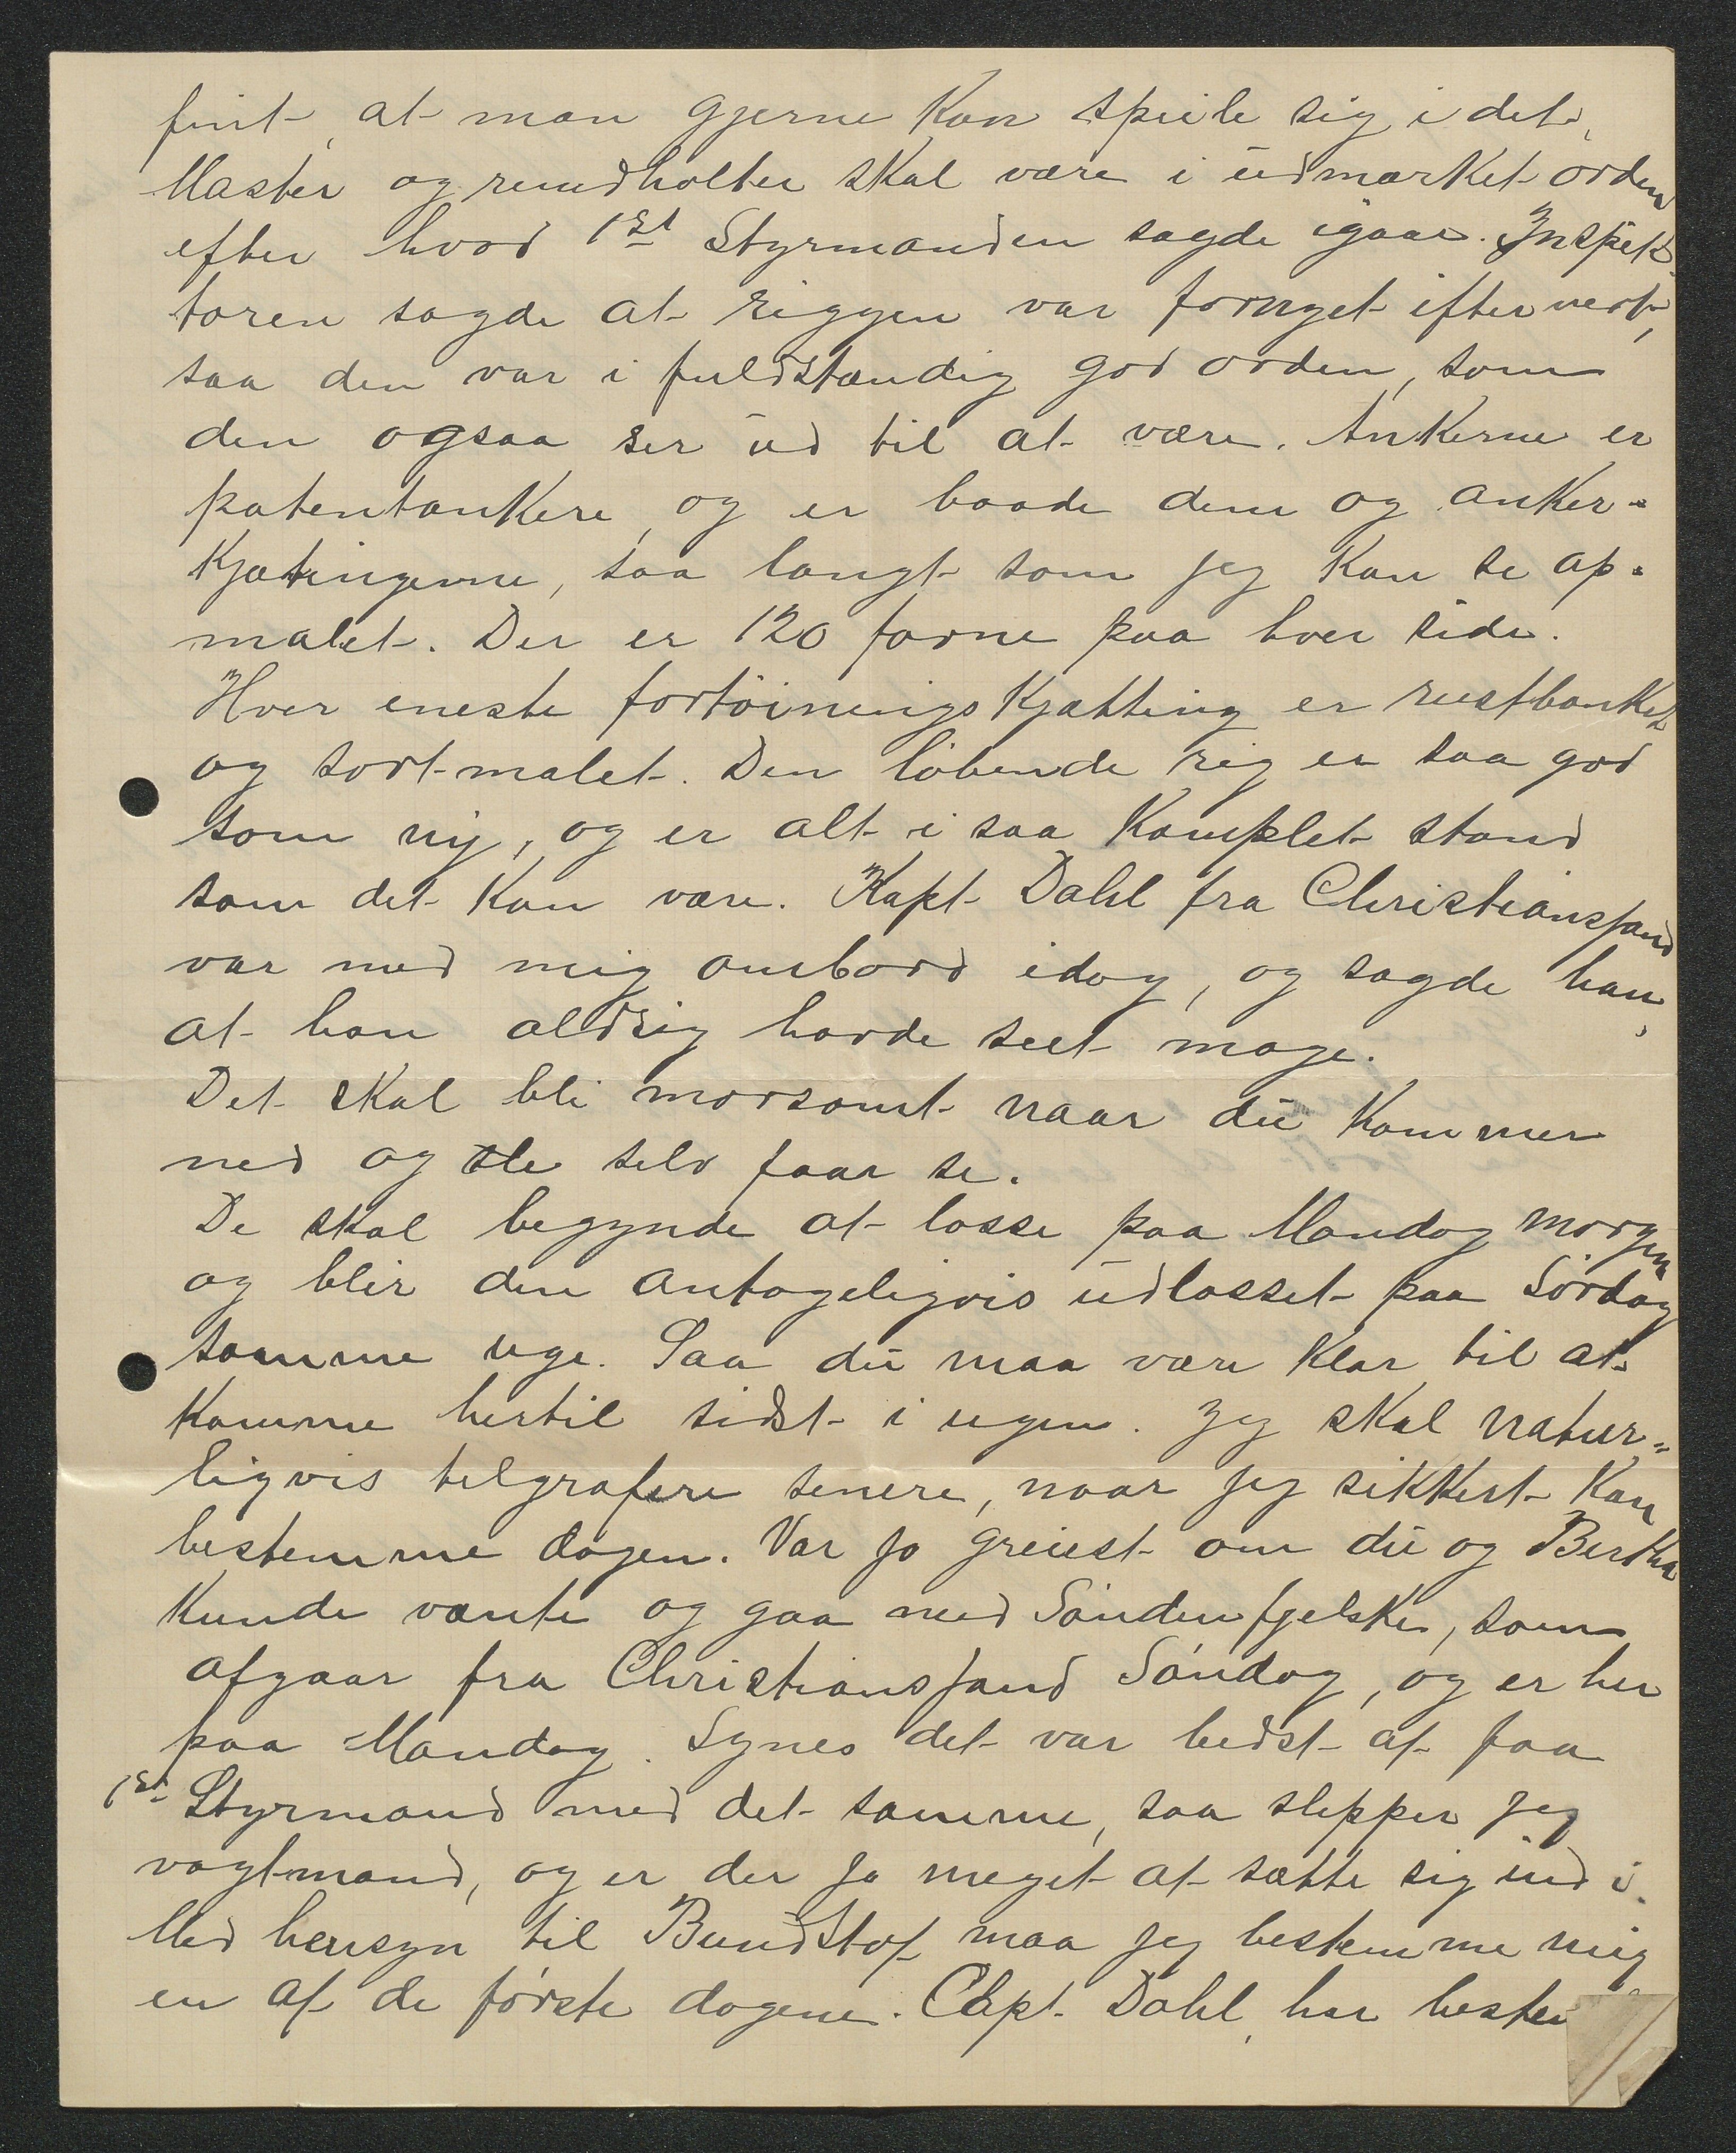 fint, at man gjerne kan speile sig i det,
Master og rundholter skal være i üdmærket orden
efter hvad 1st Styrmanden sagde igaar. Inspek-
tøren sagde at riggen var fornyet eftervert,
saa den var i fuldstændig god orden, som
den ogsaa ser üd til at være. Ankerne er
patentankere, og er baade dem og anker-
kjætingerne, saa langt som jeg kan se op-
malet. Der er 120 favne paa hver side.
Hver eneste fortöinings kjætting er rustbanket
og sort-malet. Den löbende rig er saa god
som ny, og er alt i saa komplet stand
som det kan være. Kapt Dahl fra Christianssand
var med mig ombord idag, og sagde han,
at han aldrig havde seet mage.
Det skal bli morsomt naar dü kommer
ned og selv faar se.
De skal begynde at losse paa Mandag morgen
og blir den antageligvis üdlosset paa Lördag
samme uge. Saa dü maa være klar til at
komme hertil sidst i ugen. Jeg skal natur-
ligvis telgrafere senere, naar jeg sikkert kan
bestemme dagen. Var jo greiest om dü og Bertha
kunde vente og gaa med Söndenfjelske, som
afgaar fra Christianssand Söndag, og er her
paa Mandag. Synes det var bedst at faa
1st Styrmand med det samme, saa slepper jeg
vagtmand, og er der jo meget at sætte sig ind i.
Med hensyn til Bundstof maa jeg bestemme mig
en af de förste dagene. Capt. Dahl har bestem